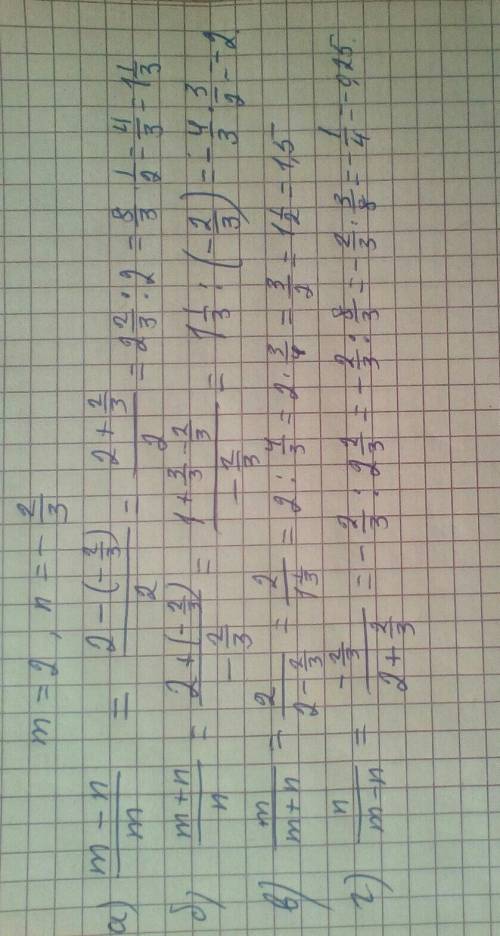 m = 2, n = -2/3
а) (m - n)/m = (2 - (-2/3))/2 = (2 + 2/3)/2 = 2 2/3 : 2 = 8/3 · 1/2 = 4/3 = 1 1/3
б) (m + n)/n = (2 + (-2/3))/(-2/3) = (1 + 3/3 - 2/3)/(-2/3) = 1 1/3 : (-2/3) = -4/3 · 3/2 = -2.
в) m/(m + n) = 2/(2 - 2/3) = 2/(1 1/3) = 2 : 4/3 = 2 · 3/4 = 3/2 = 1 1/2 = 1,5
г) n/(m - n) = (-2/3)/(2 + 2/3) = -2/3 : 2 2/3 = -2/3 : 8/3 = -2/3 · 3/8 = -1/4 = -0,25.